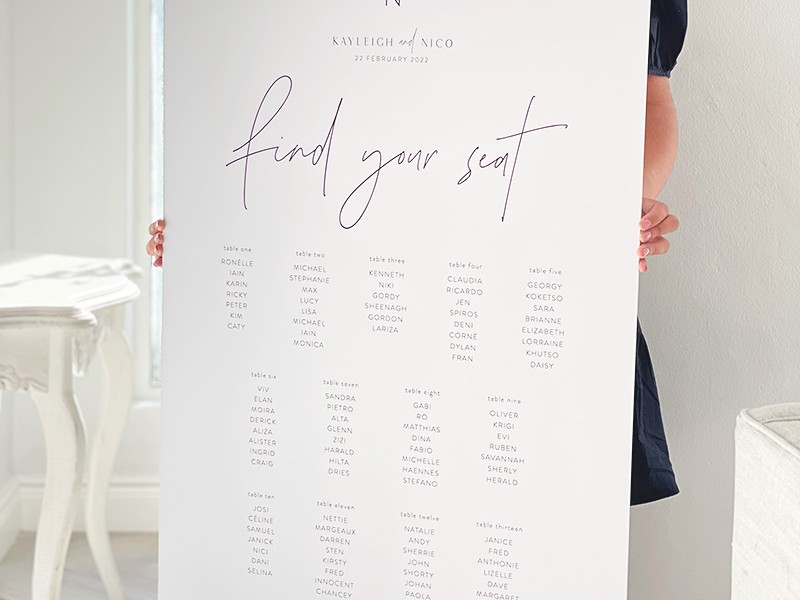 N
KAYLEIGH and NICO
22 FEBRUARY 2022
find your seat
table one
RONÉLLE
IAIN
KARIN
RICKY
PETER
KIM
CATY
table two
MICHAEL
STEPHANIE
MAX
LUCY
LISA
MICHAEL
IAIN
MONICA
table three
KENNETH
NIKI
GORDY
SHEENAGH
GORDON
LARIZA
table four
CLAUDIA
RICARDO
JEN
SPIROS
DENI
CORNÉ
DYLAN
FRAN
table five
GEORGY
KOKETSO
SARA
BRIANNE
ELIZABETH
LORRAINE
KHUTSO
DAISY
table six
VIV
ELAN
MOIRA
DERICK
ALIZA
ALISTER
INGRID
CRAIG
table seven
SANDRA
PIETRO
ALTA
GLENN
ZIZI
HARALD
HILTA
DRIES
table eight
GABI
RO
MATTHIAS
DINA
FABIO
MICHELLE
HAENNES
STEFANO
table nine
OLIVER
KRIGI
EVI
RUBEN
SAVANNAH
SHERLY
HERALD
table ten
JOSI
CÉLINE
SAMUEL
JANICK
NICI
DANI
SELINA
table eleven
NETTIE
MARGEAUX
DARREN
STEN
KIRSTY
FRED
INNOCENT
CHANCEY
table twelve
NATALIE
ANDY
SHERRIE
JOHN
SHORTY
JOHAN
PAOLA
table thirteen
JANICE
FRED
ANTHONIE
LIZELLE
DAVE
MARGARET